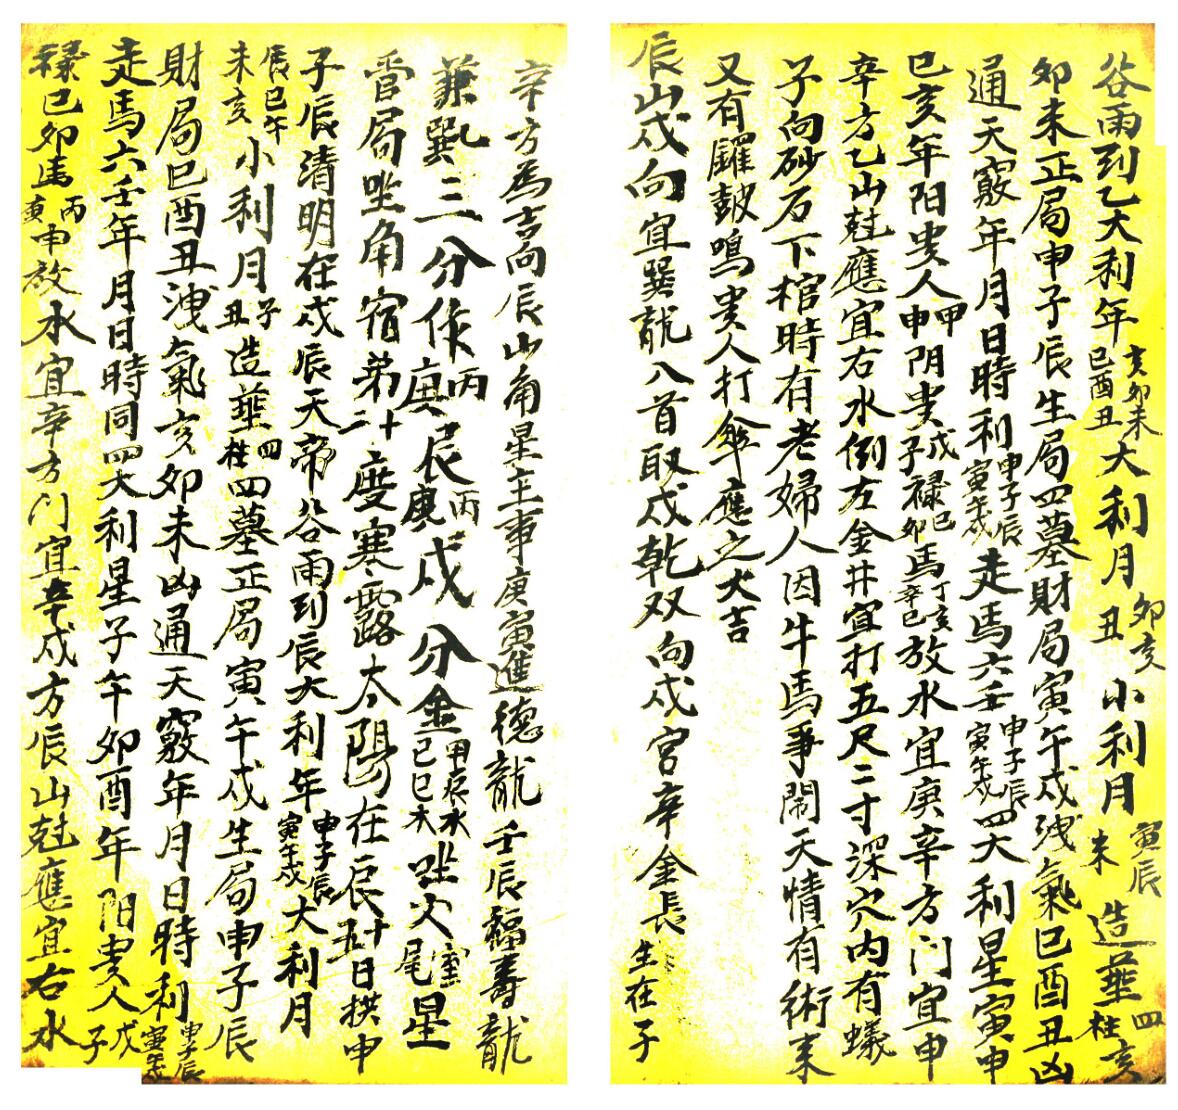 谷雨到乙大利年亥卯未巳酉丑大利月卯亥丑小利月寅辰未造葬四柱亥
卯未正局申子辰生局四墓財局寅午戌洩氣巳酉丑凶
通天竅年月日時利申子辰寅午戌走馬六壬申子辰寅午戌四大利星寅申
巳亥年阳贵人甲申阴贵戌子禄巳卯馬丁亥辛巳放水宜庚辛方门宜申
辛方乙山尅應宜右水倒左金井宜打五尺二寸深穴内有蟻
子向砂石下棺時有老婦人因牛馬事鬧天情有術来
又有鑼鼓鳴贵人打傘應之大吉
辰山戌向宜巽龍八首取戌乾双向戌宮辛金長生在子
辛方為吉向辰山角星主事庚寅進德龍壬辰福壽龍
兼巽乙三分作丙庚辰丙庚戌分金甲辰水己巳木坐火室尾星
管局坐角宿弟十二度寒露太陽在辰十五日拱申
子辰清明在戌辰天帝谷雨到辰大利年申子辰寅午戌大利月
辰巳午未亥小利月子丑造葬四柱四墓正局寅午戌生局申子辰
財局巳酉丑洩氣亥卯未凶通天竅年月日時利申子辰寅午戌
走馬六壬年月日時同四大利星子午卯酉年阳贵人戌子
禄巳卯馬丙庚申放水宜辛方门宜辛戌方辰山尅應宜右水